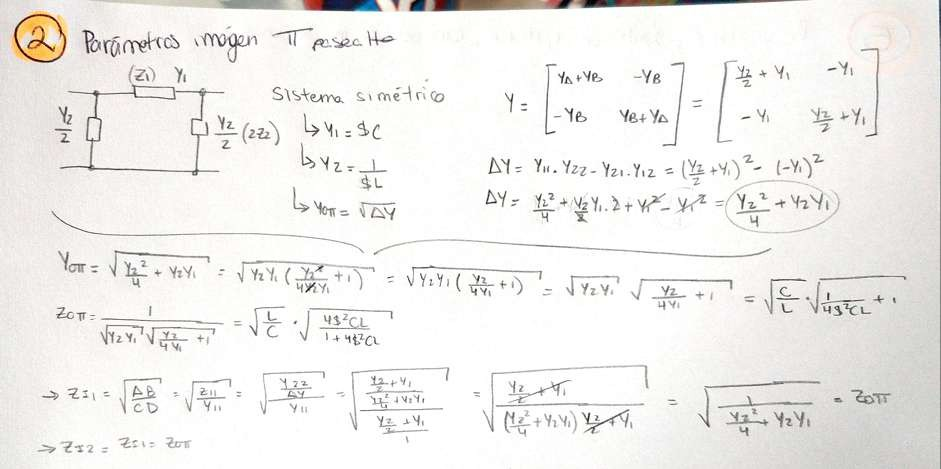 2 Parámetros imágen π pasa alto
(Z1) Y1
Y2/2
Y2/2 (2Z2)
Sistema simétrico
↳ Y1 = $C
↳ Y2 = 1/$L
↳ Y0π = √ΔY
Y = [YA+YB -YB; -YB YB+YA] = [Y2/2 + Y1 -Y1; -Y1 Y2/2 + Y1]
ΔY = Y11.Y22 - Y21.Y12 = (Y2/2 + Y1)² - (-Y1)²
ΔY = Y2²/4 + Y2/2 Y1.2 + Y1² - Y1² = Y2²/4 + Y2Y1
Y0π = √(Y2²/4 + Y2Y1) = √(Y2Y1 (Y2²/4Y2Y1 + 1)) = √(Y2Y1 (Y2/4Y1 + 1)) = √(Y2Y1) √(Y2/4Y1 + 1) = √(C/L) . √(1/4$²CL + 1)
Z0π = 1/(√(Y2Y1) √(Y2/4Y1 + 1)) = √(L/C) . √(4$²CL/1+4$²CL)
→ ZI1 = √(AB/CD) = √(Z11/Y11) = √((Y22/ΔY)/Y11) = √(((Y2/2 + Y1)/(Y2²/4 + Y2Y1))/((Y2/2 + Y1)/1)) = √((Y2/2 + Y1)/((Y2²/4 + Y2Y1) (Y2/2 + Y1))) = √(1/(Y2²/4 + Y2Y1)) = Z0π
→ ZI2 = ZI1 = Z0π